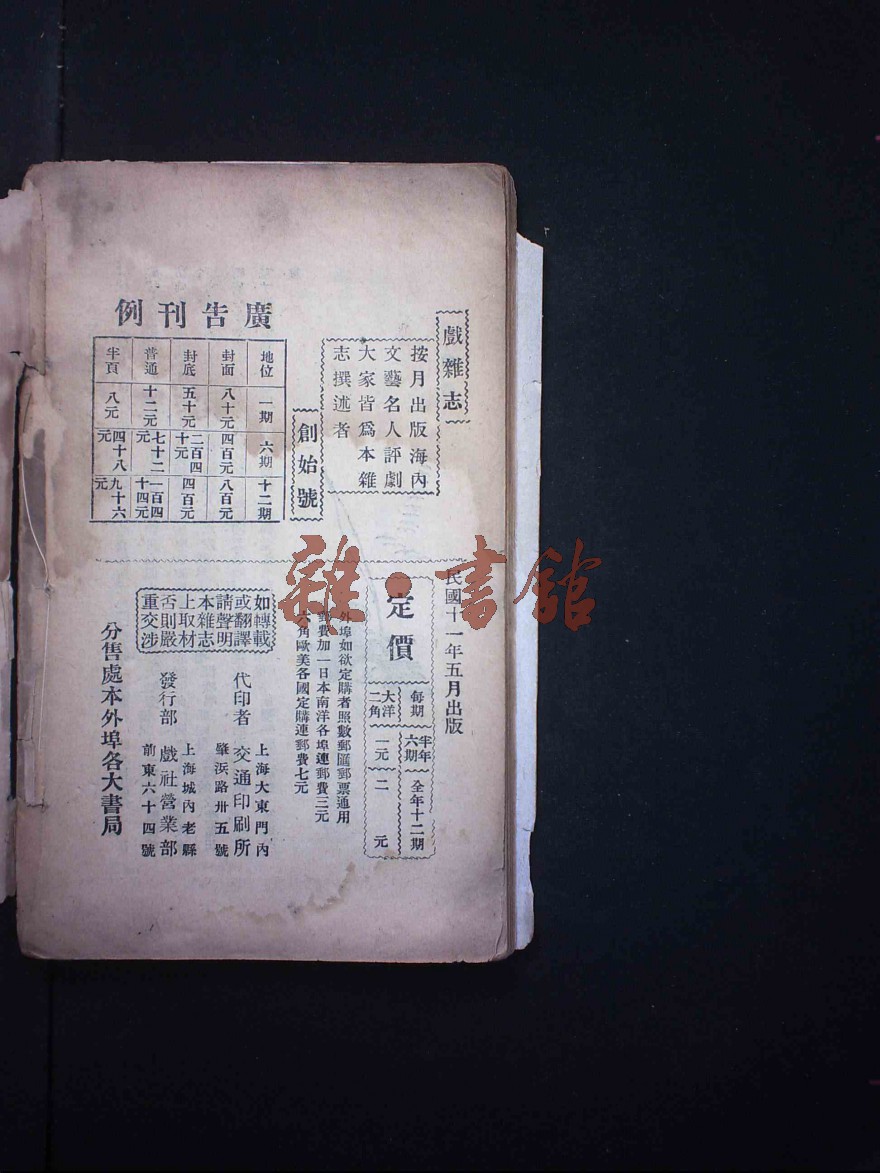 戲雜志
按月出版海內
文藝名人評劇
大家皆爲本雜
志撰述者
創始號
廣告刊例
地位 一期 六期 十二期
封面 八十元 四百元 八百元
封底 五十元 二百四十元 四百元
普通 十二元 七十二元 一百四十四元
半頁 八元 四十八元 九十六元
民國十一年五月出版
定價
每期 半年六期 全年十二期
大洋二角 一元 二元
外埠如欲定購者照數郵匯郵票通用
郵費加一日本南洋各埠連郵費三元
六角歐美各國定購連郵費七元
如轉載
或翻譯
請聲明
本雜志
上取材
否則嚴
重交涉
代印者 上海大東門內肇浜路卅五號 交通印刷所
發行部 上海城內老縣前東六十四號 戲社營業部
分售處本外埠各大書局
雜·書館